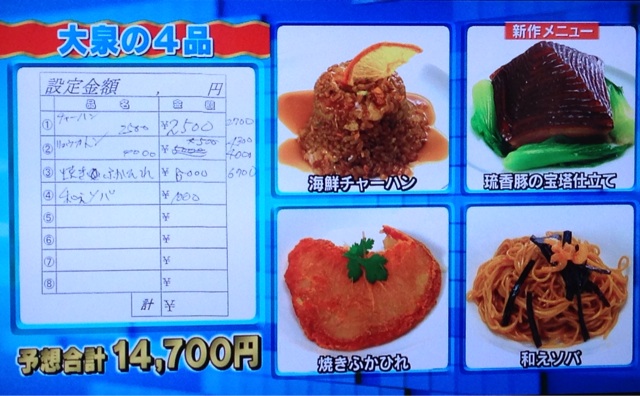 大泉の4品
設定金額 , 円
品名 金額
① チャーハン 2500 ¥2,500 2700
②
4000
③ 焼きふかひれ ¥6000
④ 和えソバ ¥
⑤ ¥
⑥ ¥
⑦ ¥
⑧ ¥
計 ¥
予想合計 14,700円
海鮮チャーハン
新作メニュー
琉香豚の宝塔仕立て
焼きふかひれ
和えソバ